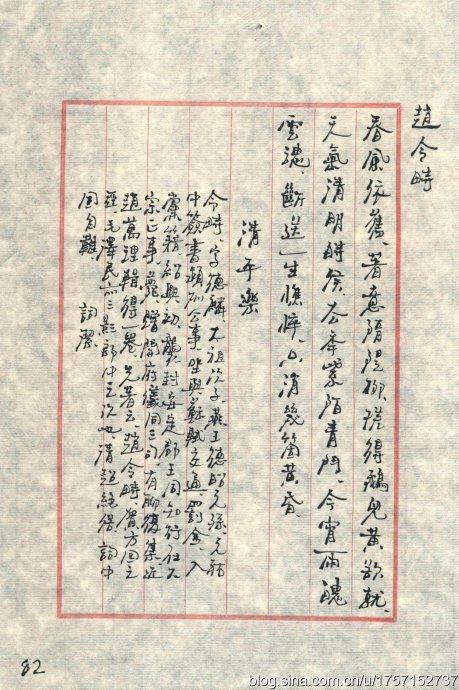 趙令時
春風依舊。著意隋隄柳。搓得鵝兒黃欲就。
天氣清明時候。去年紫陌青門。今宵雨魄
雲魂。斷送一生憔悴。只消幾箇黃昏。
清平樂
令時,字德麟,太祖次子燕王德昭元孫,元祐
中簽書潁州公事,坐與蘇軾交通,罰金,入
黨籍。紹興初,襲封安定郡王,同知行在大
宗正事。薨,贈開府儀同三司。有聊復集,近
趙萬里輯得一卷。先著云,趙令時,賀方回之
亞,毛澤民亦三影郎中之次也。清超絕俗,詞中
固自難 詞潔
82
blog.sina.com.cn/u/1757152737